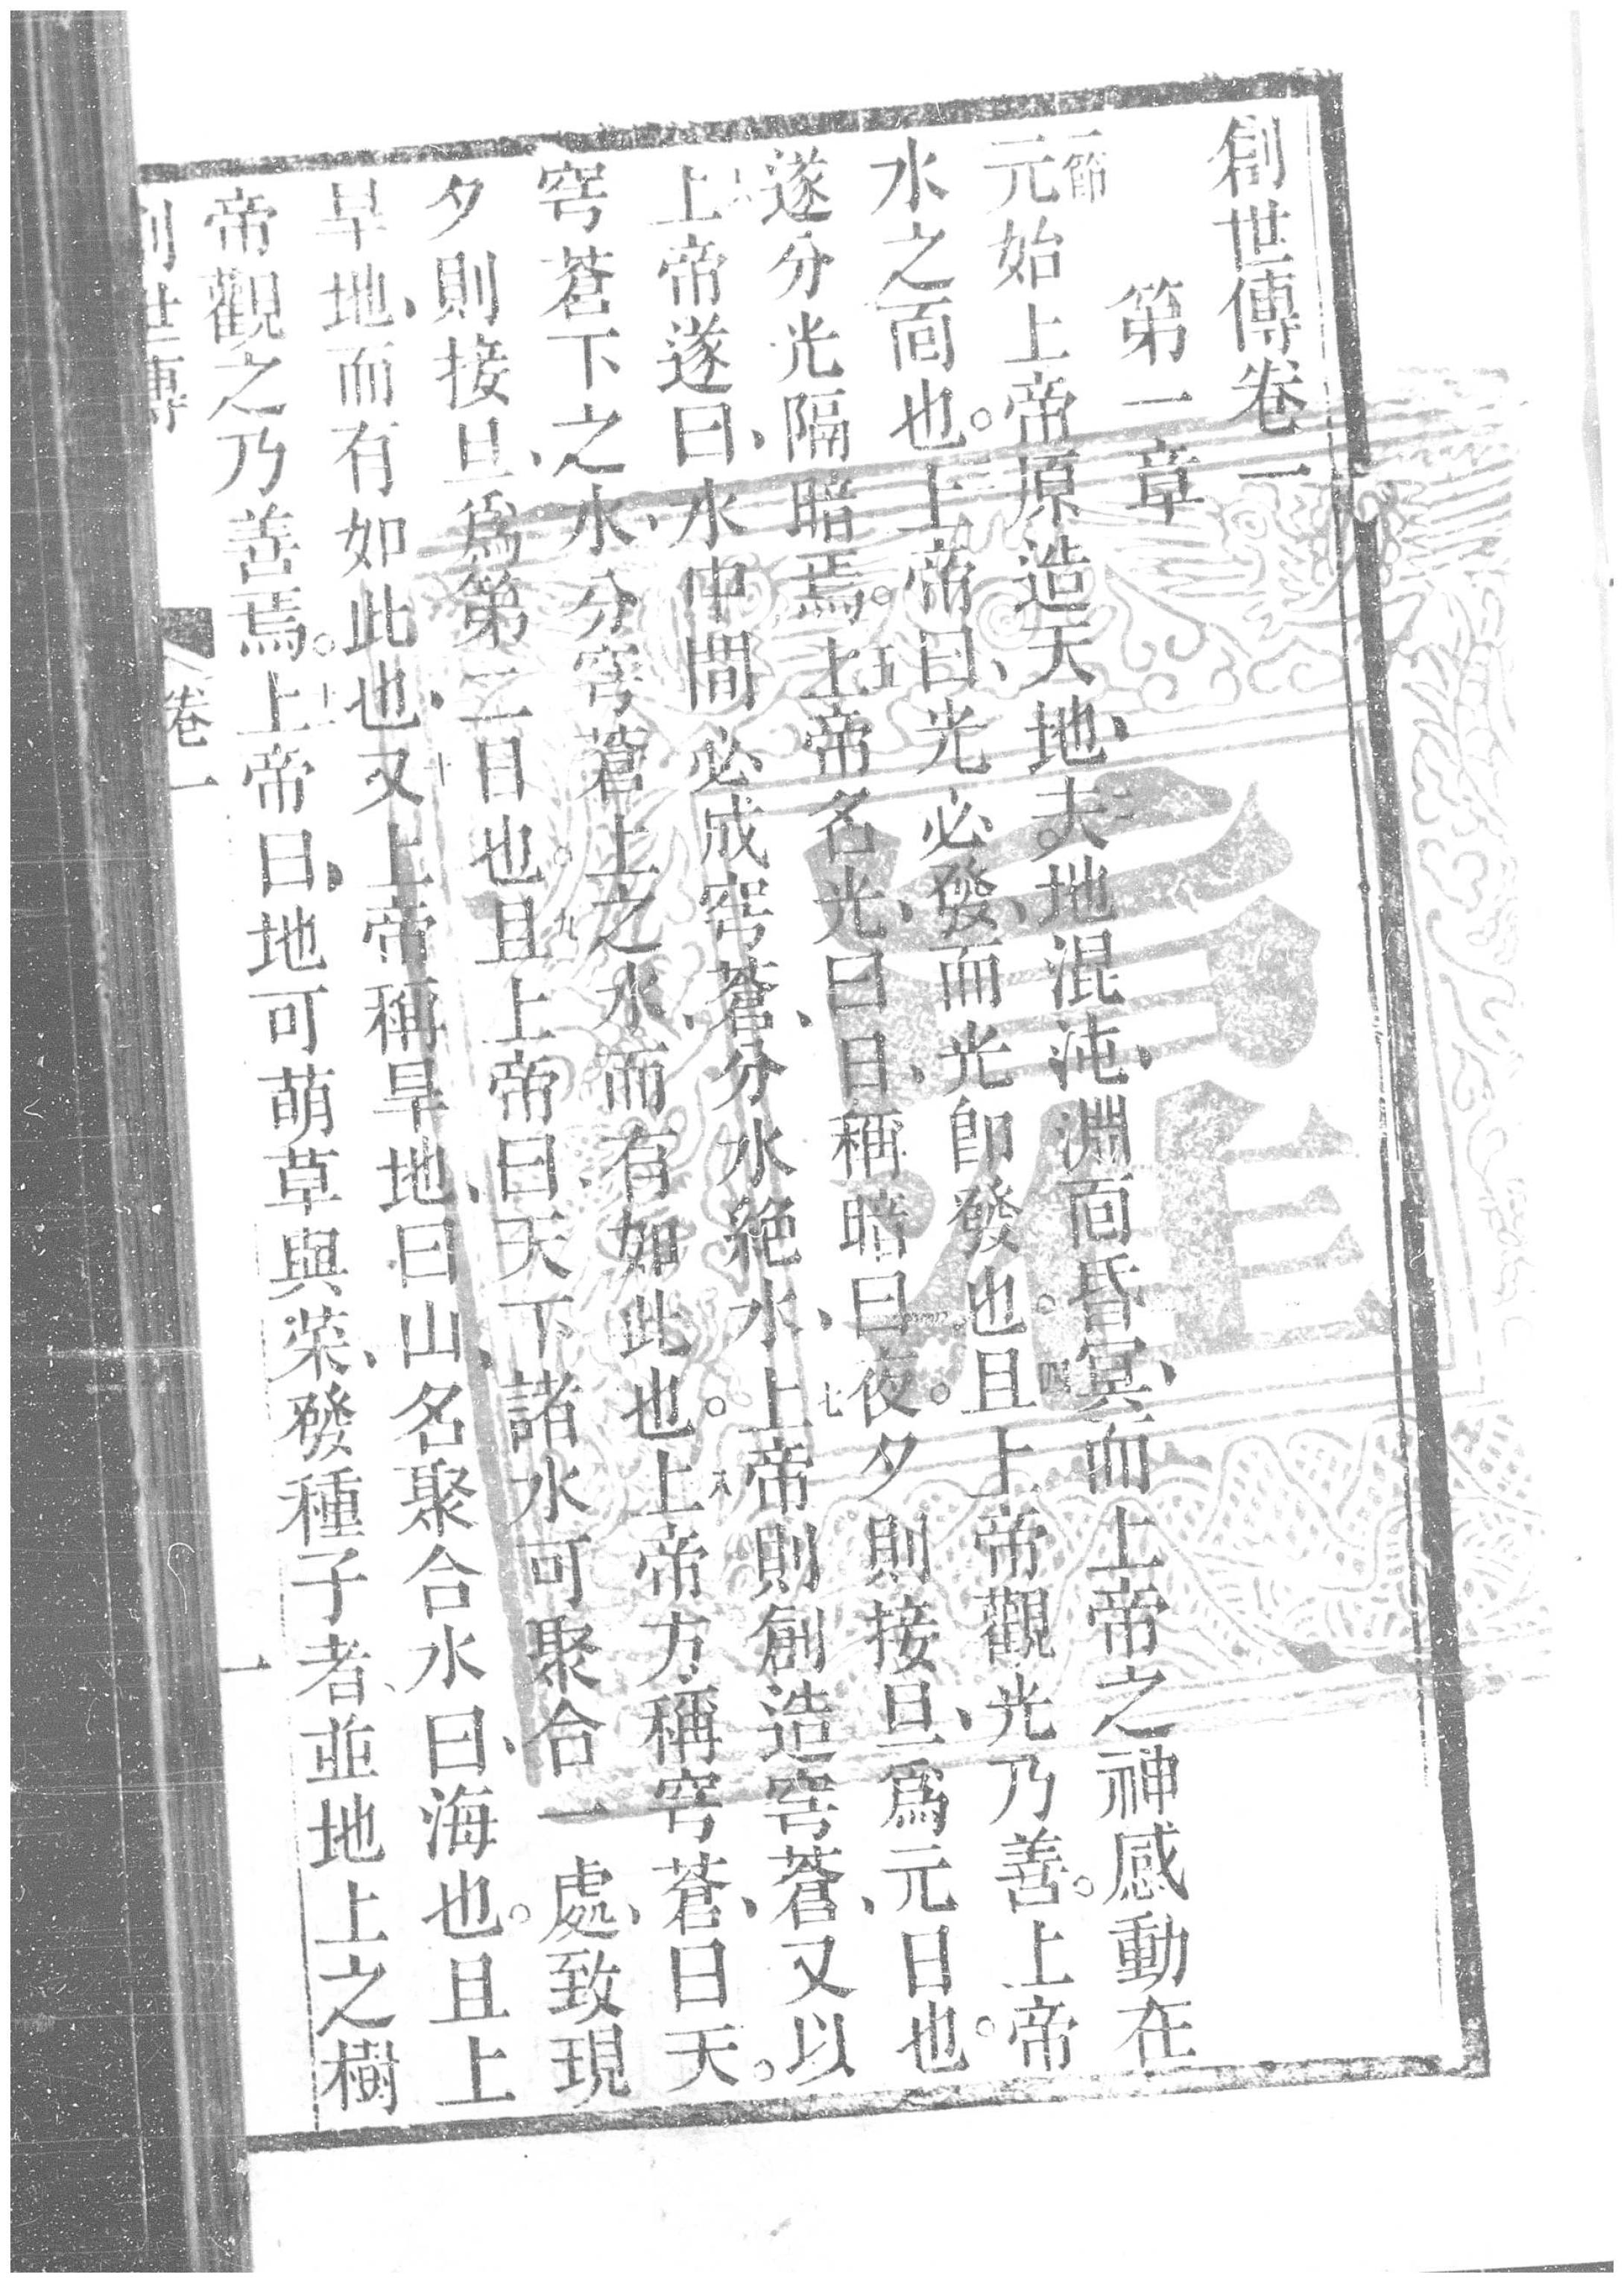 創世傳卷一
第一章
一節元始上帝原造天地、二夫地混沌、淵面昏冥、而上帝之神感動在
水之面也。三上帝曰、光必發、而光即發也。四且上帝觀光乃善。上帝
遂分光隔暗焉。五上帝名光、曰日、稱暗曰夜。夕則接旦、爲元日也。
上帝遂曰、水中間必成穹蒼、分水絶水、七上帝則創造穹蒼、又以
穹蒼下之水、分穹蒼上之水、而有如此也。八上帝方稱穹蒼、曰天。
夕則接旦、爲第二日也。九且上帝曰、天下諸水可聚合一處、致現
旱地、而有如此也、十又上帝稱旱地、曰山、名聚合水曰、海也。且上
帝觀之乃善焉。十一上帝曰、地可萌草與菜、發種子者、並地上之樹
創世傳
卷一
一